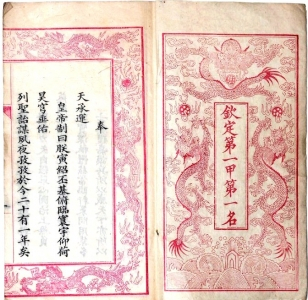 欽定第一甲第一名
奉
天承運
皇帝制曰朕寅紹丕基俯臨寰宇仰荷
昊穹垂佑
列聖詒謀夙夜孜孜於今二十有一年矣